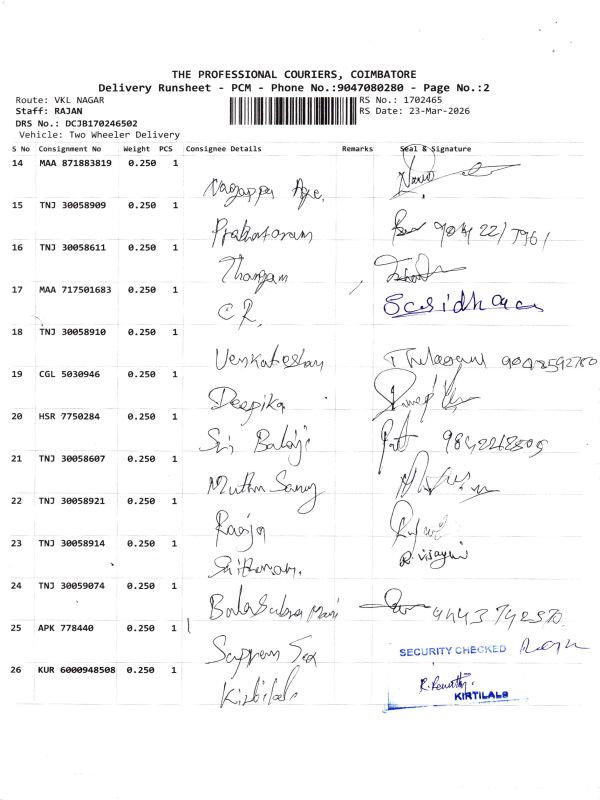 THE PROFESSIONAL COURIERS, COIMBATORE
Delivery Runsheet - PCM - Phone No.:9047080280 - Page No.:2
Route: VKL NAGAR
Staff: RAJAN
DRS No.: DCJB170246502
Vehicle: Two Wheeler Delivery
RS No.: 1702465
RS Date: 23-Mar-2026
S No Consignment No Weight PCS Consignee Details Remarks Seal & Signature
14 MAA 871883819 0.250 1
Nagappa
15 TNJ 30058909 0.250 1
16 TNJ 30058611 0.250 1
Thangam
17 MAA 717501683 0.250 1
C.R. Sasidharan
18 TNJ 30058910 0.250 1
Venkateshan
19 CGL 5030946 0.250 1
Deepika
20 HSR 7750284 0.250 1
Sri Balaji
21 TNJ 30058607 0.250 1
Muthu Samy
22 TNJ 30058921 0.250 1
23 TNJ 30058914 0.250 1
24 TNJ 30059074 0.250 1
Bala Subra Mani
25 APK 778440 0.250 1
SECURITY CHECKED
26 KUR 6000948508 0.250 1
Kirtilals
KIRTILALS